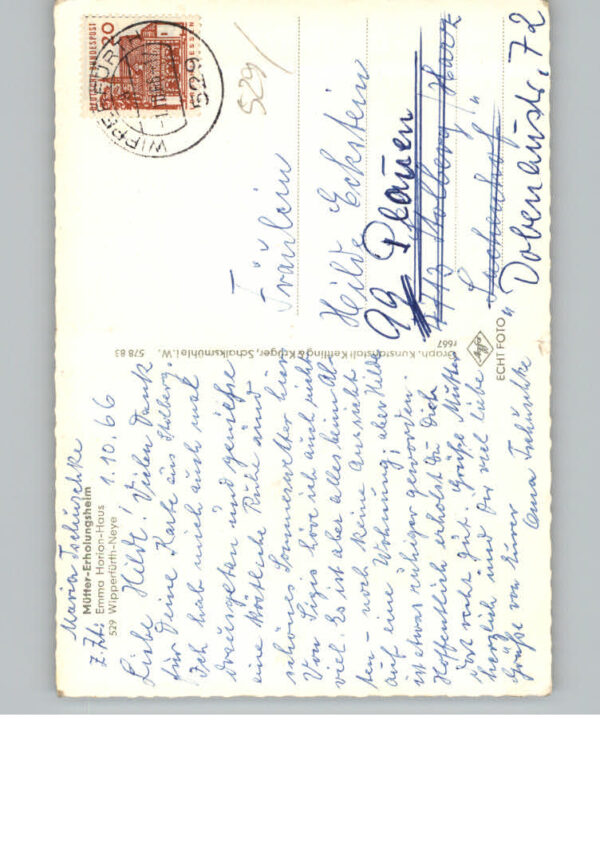 Maria Tschuschke
Mütter-Erholungsheim
z. Zt: Emma Horion-Haus
529 Wipperfürth-Neye
1.10.66
Liebe Hilde! Vielen Dank
für Deine Karte aus Stolberg.
Ich hab mich auch mal
losgerissen und genieße
eine köstliche Ruhe und
schönes Sommerwetter hier.
Von Sigis höre ich auch nicht
viel. Es ist aber alles beim Al-
ten - noch keine Aussicht
auf eine Wohnung, aber Hilde
ist etwas ruhiger geworden.
Hoffentlich erholst Du Dich
dort recht gut. Grüße Mutter
herzlich und Dir viel liebe
Grüße von Eurer
Tschuschke
578 83
Graph. Kunstanstalt Kettling & Krüger, Schalksmühle i.W.
r667
Agfa
ECHT FOTO
DEUTSCHE BUNDESPOST
20
WIPPERFÜRTH
529
529/
Fräulein
Hilde Eckstein
99 Plauen
4713 Stolberg/Harz
Dobenaustr. 72